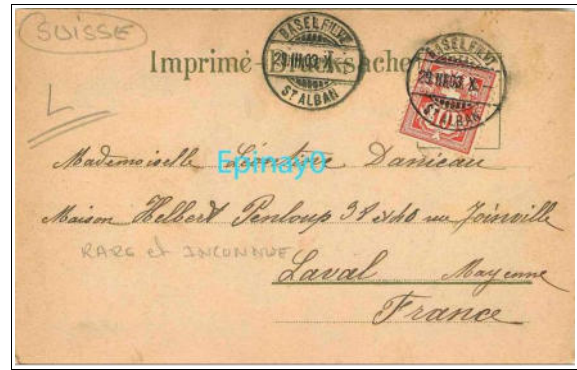 SUISSE
Imprimé - Drucksache
BASEL FIL. VI
29.III.03.X.-
ST ALBAN
BASEL FIL. VI
29.III.03.X.-
ST ALBAN
10
L
Mademoiselle Léontine Danicau
Epinay0
Maison Helbert Penloup 38 et 40 rue Joinville
RARE et INCONNUE
Laval Mayenne
France